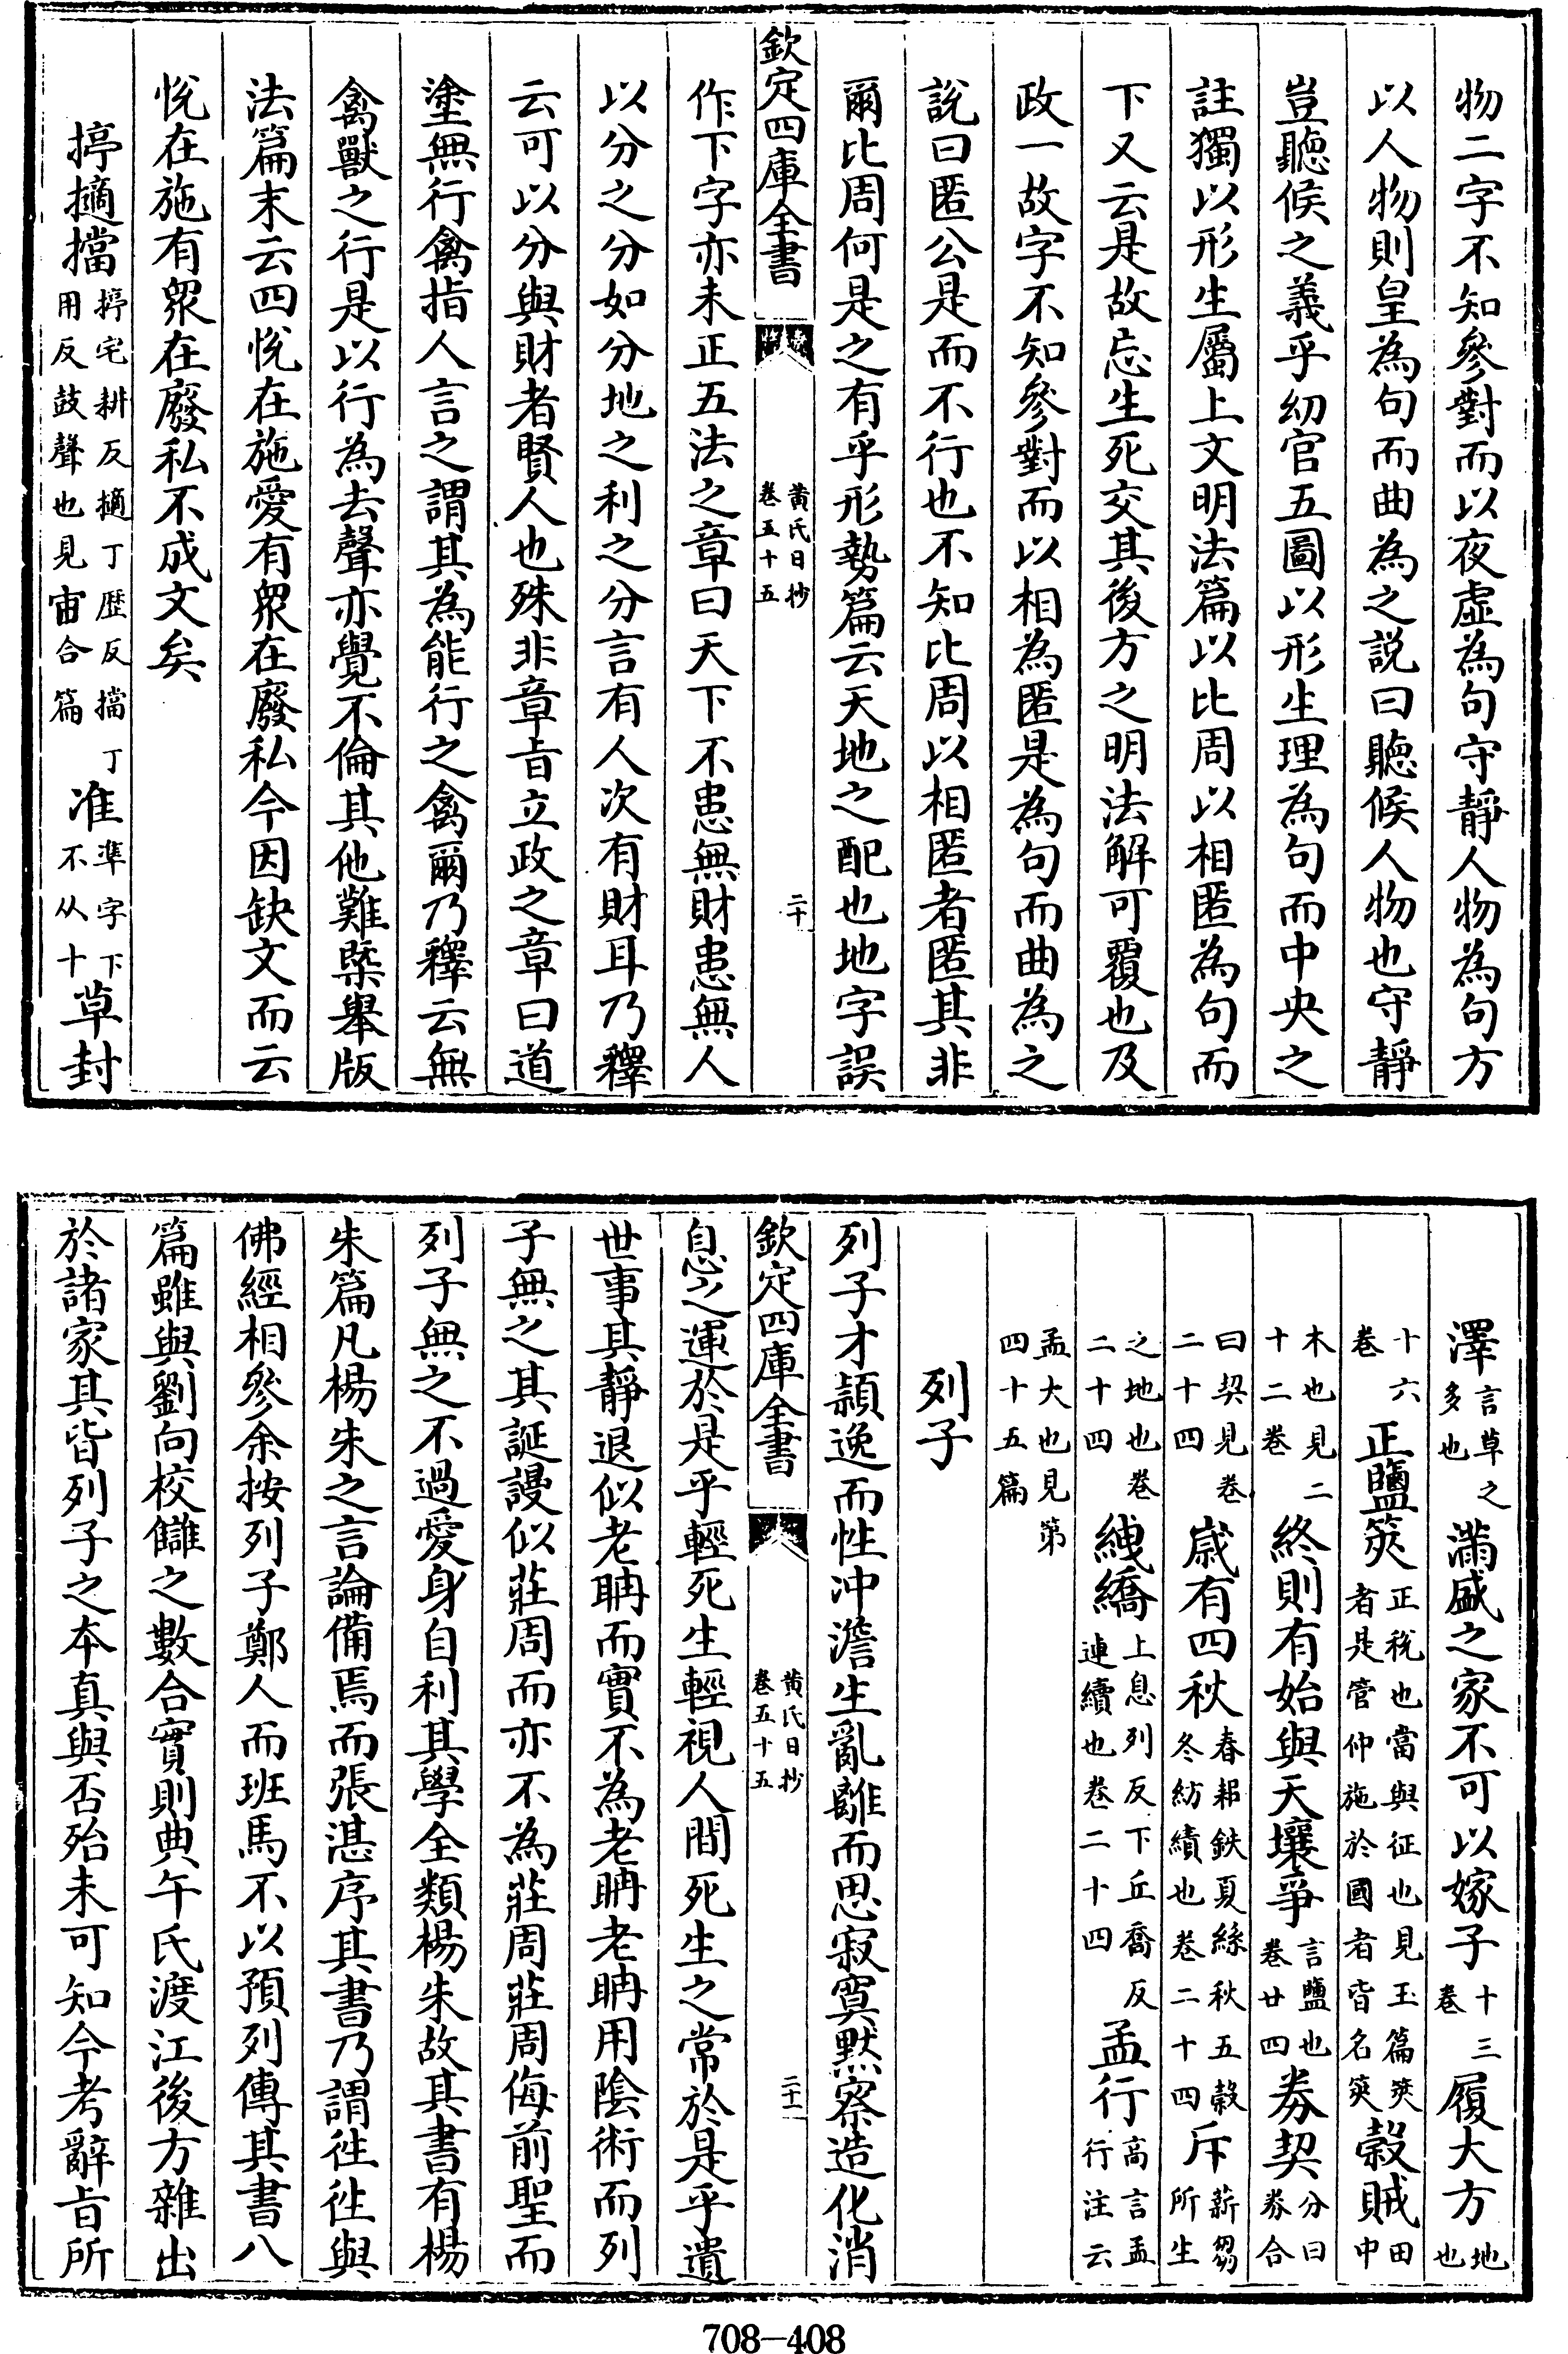 物二字不知參對而以夜虛為句守靜人物為句方
以人物則皇為句而曲為之説曰聽候人物也守靜
豈聽候之義乎幼官五圖以形生理為句而中央之
註獨以形生屬上文明法篇以比周以相匿為句而
下又云是故忘生死交其後方之明法解可覆也及
政一故字不知參對而以相為匿是為句而曲為之
說曰匿公是而不行也不知比周以相匿者匿其非
爾比周何是之有乎形勢篇云天地之配也地字誤
欽定四庫全書
黃氏日抄
卷五十五
二十
作下字亦未正五法之章曰天下不患無財患無人
以分之分如分地之利之分言有人次有財耳乃釋
云可以分與財者賢人也殊非章㫖立政之章曰道
塗無行禽指人言之謂其為能行之禽爾乃釋云無
禽獸之行是以行為去聲亦覺不倫其他難槩舉版
法篇末云四悅在施愛有衆在廢私今因缺文而云
悅在施有衆在廢私不成文矣
揨擿擋揨宅耕反擿丁歷反擋丁用反鼓聲也見宙合篇准準字下不从十草封
澤言草之多也滿盛之家不可以嫁子十三卷履大方地也
十六卷正鹽筴正稅也當與征也見玉篇筴者是管仲施於國者皆名筴穀賊田中
木也見二十二卷終則有始與天壤爭言鹽也卷廿四劵契分曰劵合
曰契見卷二十四歲有四秋春耜鉄夏絲秋五穀冬紡績也卷二十四斥薪芻所生
之地也卷二十四緤繑上息列反下丘喬反連續也卷二十四孟行高言孟行注云
孟大也見第四十五篇
列子
列子才頴逸而性冲澹生亂離而思寂寞黙察造化消
息之運於是乎輕死生輕視人間死生之常於是乎遺
世事其靜退似老聃而實不為老聃老聃用陰術而列
子無之其誕謾似莊周而亦不為莊周莊周侮前聖而
列子無之不過愛身自利其學全類楊朱故其書有楊
朱篇凡楊朱之言論備焉而張湛序其書乃謂徃徃與
佛經相參余按列子鄭人而班馬不以預列傳其書八
篇雖與劉向校讎之數合實則典午氏渡江後方雜出
於諸家其皆列子之本真與否殆未可知今考辭㫖所
欽定四庫全書
黃氏日抄
卷五十五
二十一
708—408